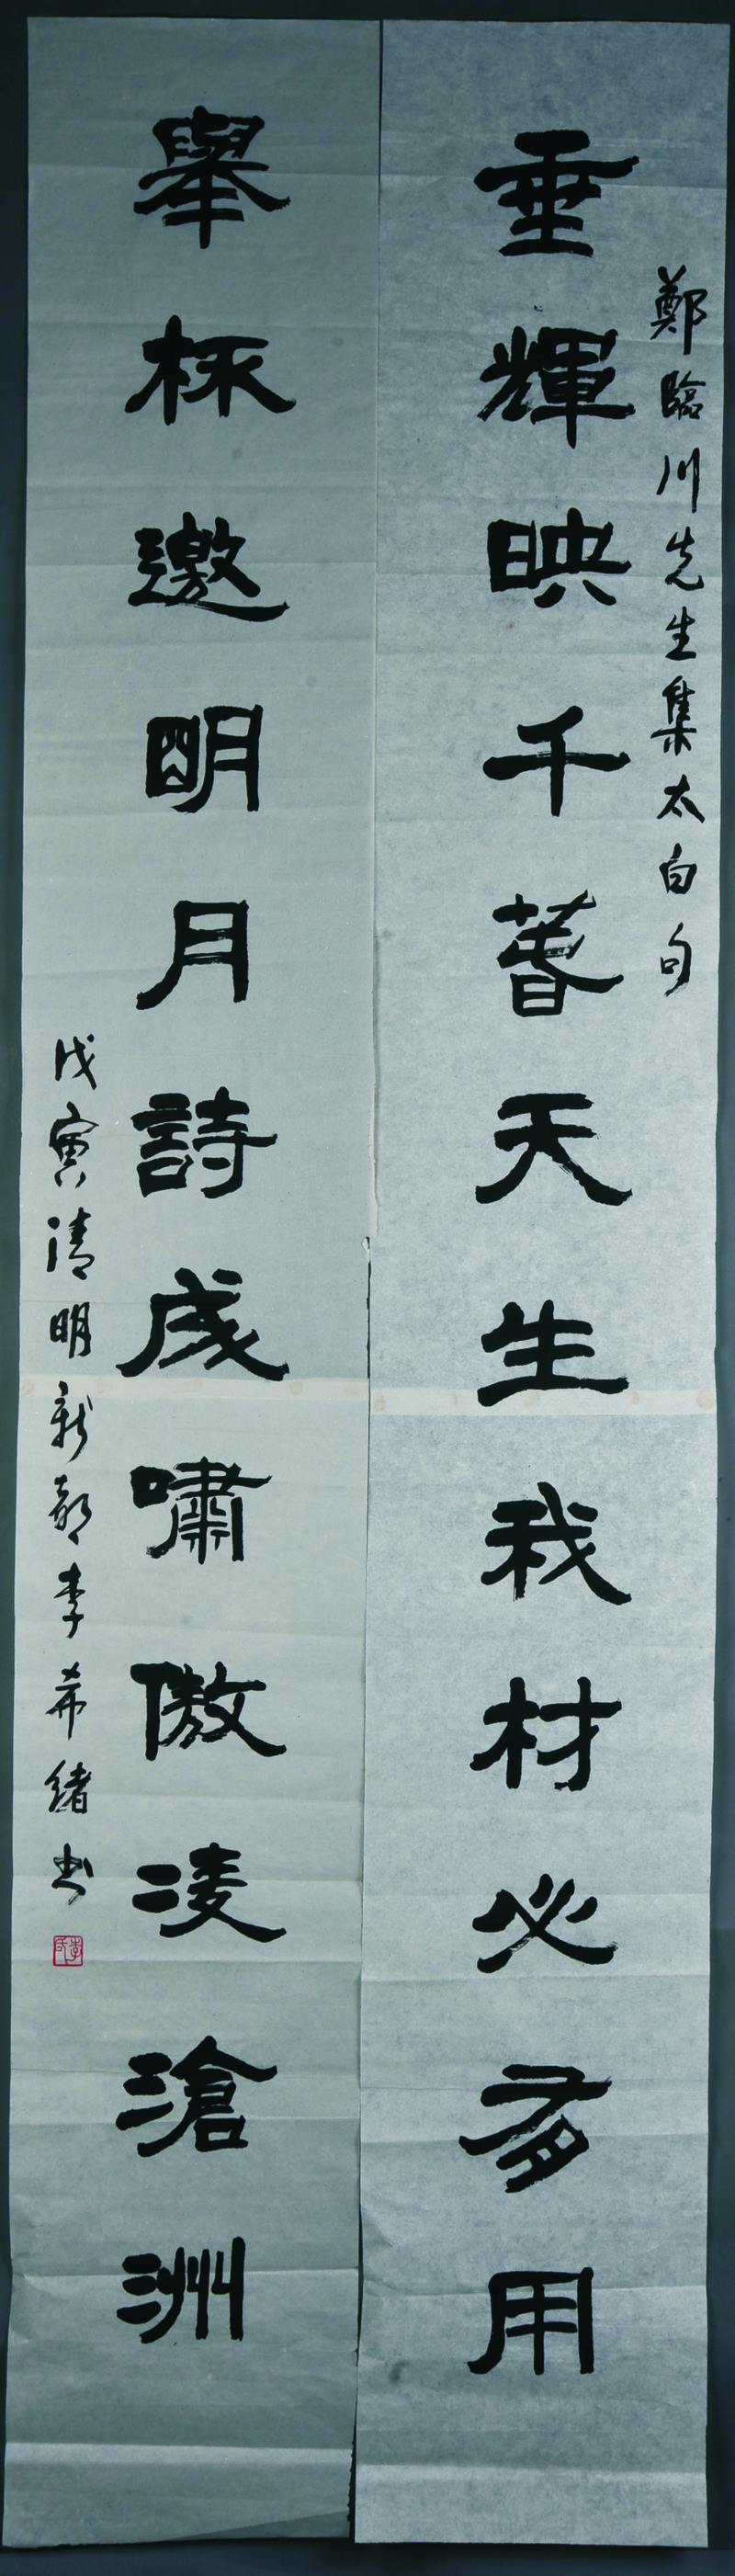 鄭臨川先生集太白句
垂輝映千萅天生我材必有用
舉杯邀明月詩成嘯傲凌滄洲
戊寅清明新都李希緒书